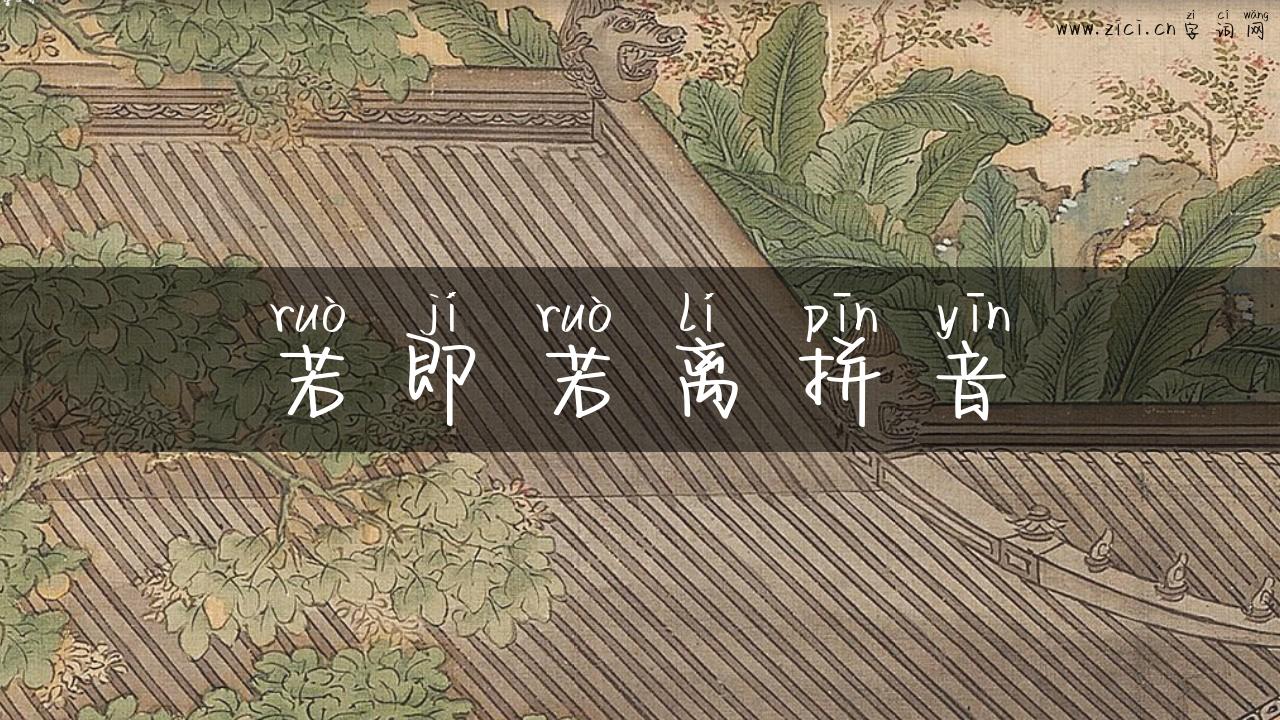 zì cí wǎng
www.zici.cn 字词网
ruò jí ruò lí pīn yīn
若即若离拼音